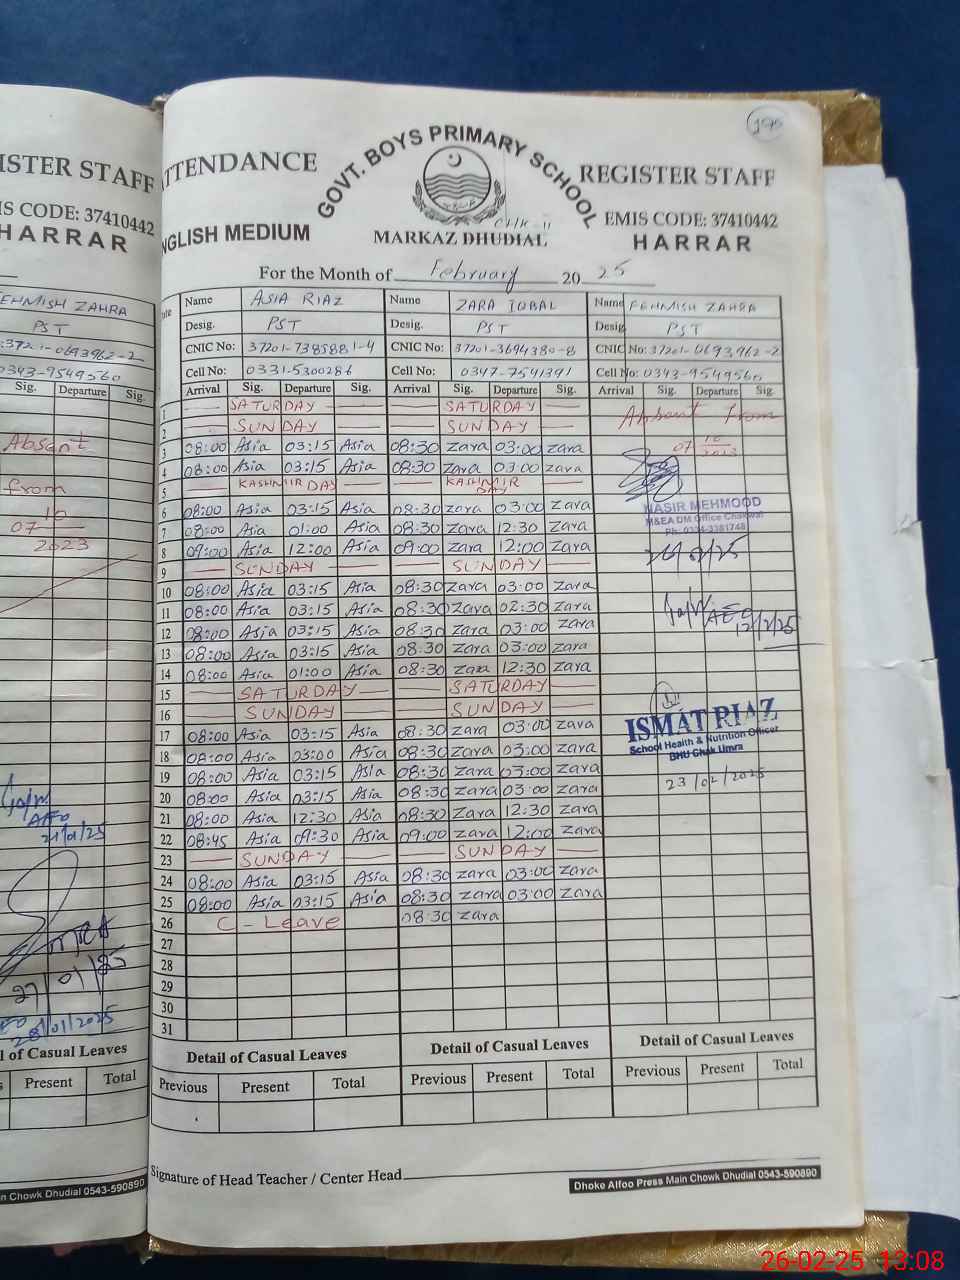 ISTER STAFF
IS CODE: 37410442
HARRAR
EHMISH ZAHRA
PST
37201-0693962-2
0343-9549560
Sig. Departure Sig.
Absent
from
07 10
2023
AEO
21/01/25
27/01/25
28/01/2025
l of Casual Leaves
s Present Total
n Chowk Dhudial 0543-590890
195
TTENDANCE GOVT. BOYS PRIMARY SCHOOL REGISTER STAFF
EMIS CODE: 37410442
NGLISH MEDIUM MARKAZ DHUDIAL HARRAR
For the Month of February 20 25
Name ASIA RIAZ Name ZARA IQBAL Name FEHMISH ZAHRA
Desig. PST Desig. PST Desig. PST
CNIC No: 37201-7385881-4 CNIC No: 37201-3694380-8 CNIC No: 37201-0693962-2
Cell No: 0331-5300286 Cell No: 0347-7541391 Cell No: 0343-9549560
Arrival Sig. Departure Sig. Arrival Sig. Departure Sig. Arrival Sig. Departure Sig.
1 SATURDAY SATURDAY Absent from
2 SUNDAY SUNDAY
3 08:00 Asia 03:15 Asia 08:30 zara 03:00 zara 07 10 2023
4 08:00 Asia 03:15 Asia 08:30 zara 03:00 zara
5 KASHMIR DAY KASHMIR DAY
6 08:00 Asia 03:15 Asia 08:30 zara 03:00 zara NASIR MEHMOOD
M&EA DM Office Chakwal
7 08:00 Asia 01:00 Asia 08:30 zara 12:30 zara Ph: 0334-3381748
8 09:00 Asia 12:00 Asia 09:00 zara 12:00 zara 26/2/25
9 SUNDAY SUNDAY
10 08:00 Asia 03:15 Asia 08:30 zara 03:00 zara
11 08:00 Asia 03:15 Asia 08:30 zara 02:30 zara AEO
12 08:00 Asia 03:15 Asia 08:30 zara 03:00 zara 12/2/25
13 08:00 Asia 03:15 Asia 08:30 zara 03:00 zara
14 08:00 Asia 01:00 Asia 08:30 zara 12:30 zara
15 SATURDAY SATURDAY
16 SUNDAY SUNDAY ISMAT RIAZ
17 08:00 Asia 03:15 Asia 08:30 zara 03:00 zara School Health & Nutrition Officer
BHU Chak Umra
18 08:00 Asia 03:00 Asia 08:30 zara 03:00 zara
19 08:00 Asia 03:15 Asia 08:30 zara 03:00 zara 23/02/2025
20 08:00 Asia 03:15 Asia 08:30 zara 03:00 zara
21 08:00 Asia 12:30 Asia 08:30 zara 12:30 zara
22 08:45 Asia 09:30 Asia 09:00 zara 12:00 zara
23 SUNDAY SUNDAY
24 08:00 Asia 03:15 Asia 08:30 zara 03:00 zara
25 08:00 Asia 03:15 Asia 08:30 zara 03:00 zara
26 C-Leave 08:30 zara
27
28
29
30
31
Detail of Casual Leaves Detail of Casual Leaves Detail of Casual Leaves
Previous Present Total Previous Present Total Previous Present Total
Signature of Head Teacher / Center Head
Dhoke Alfoo Press Main Chowk Dhudial 0543-590890
26-02-25 13:08